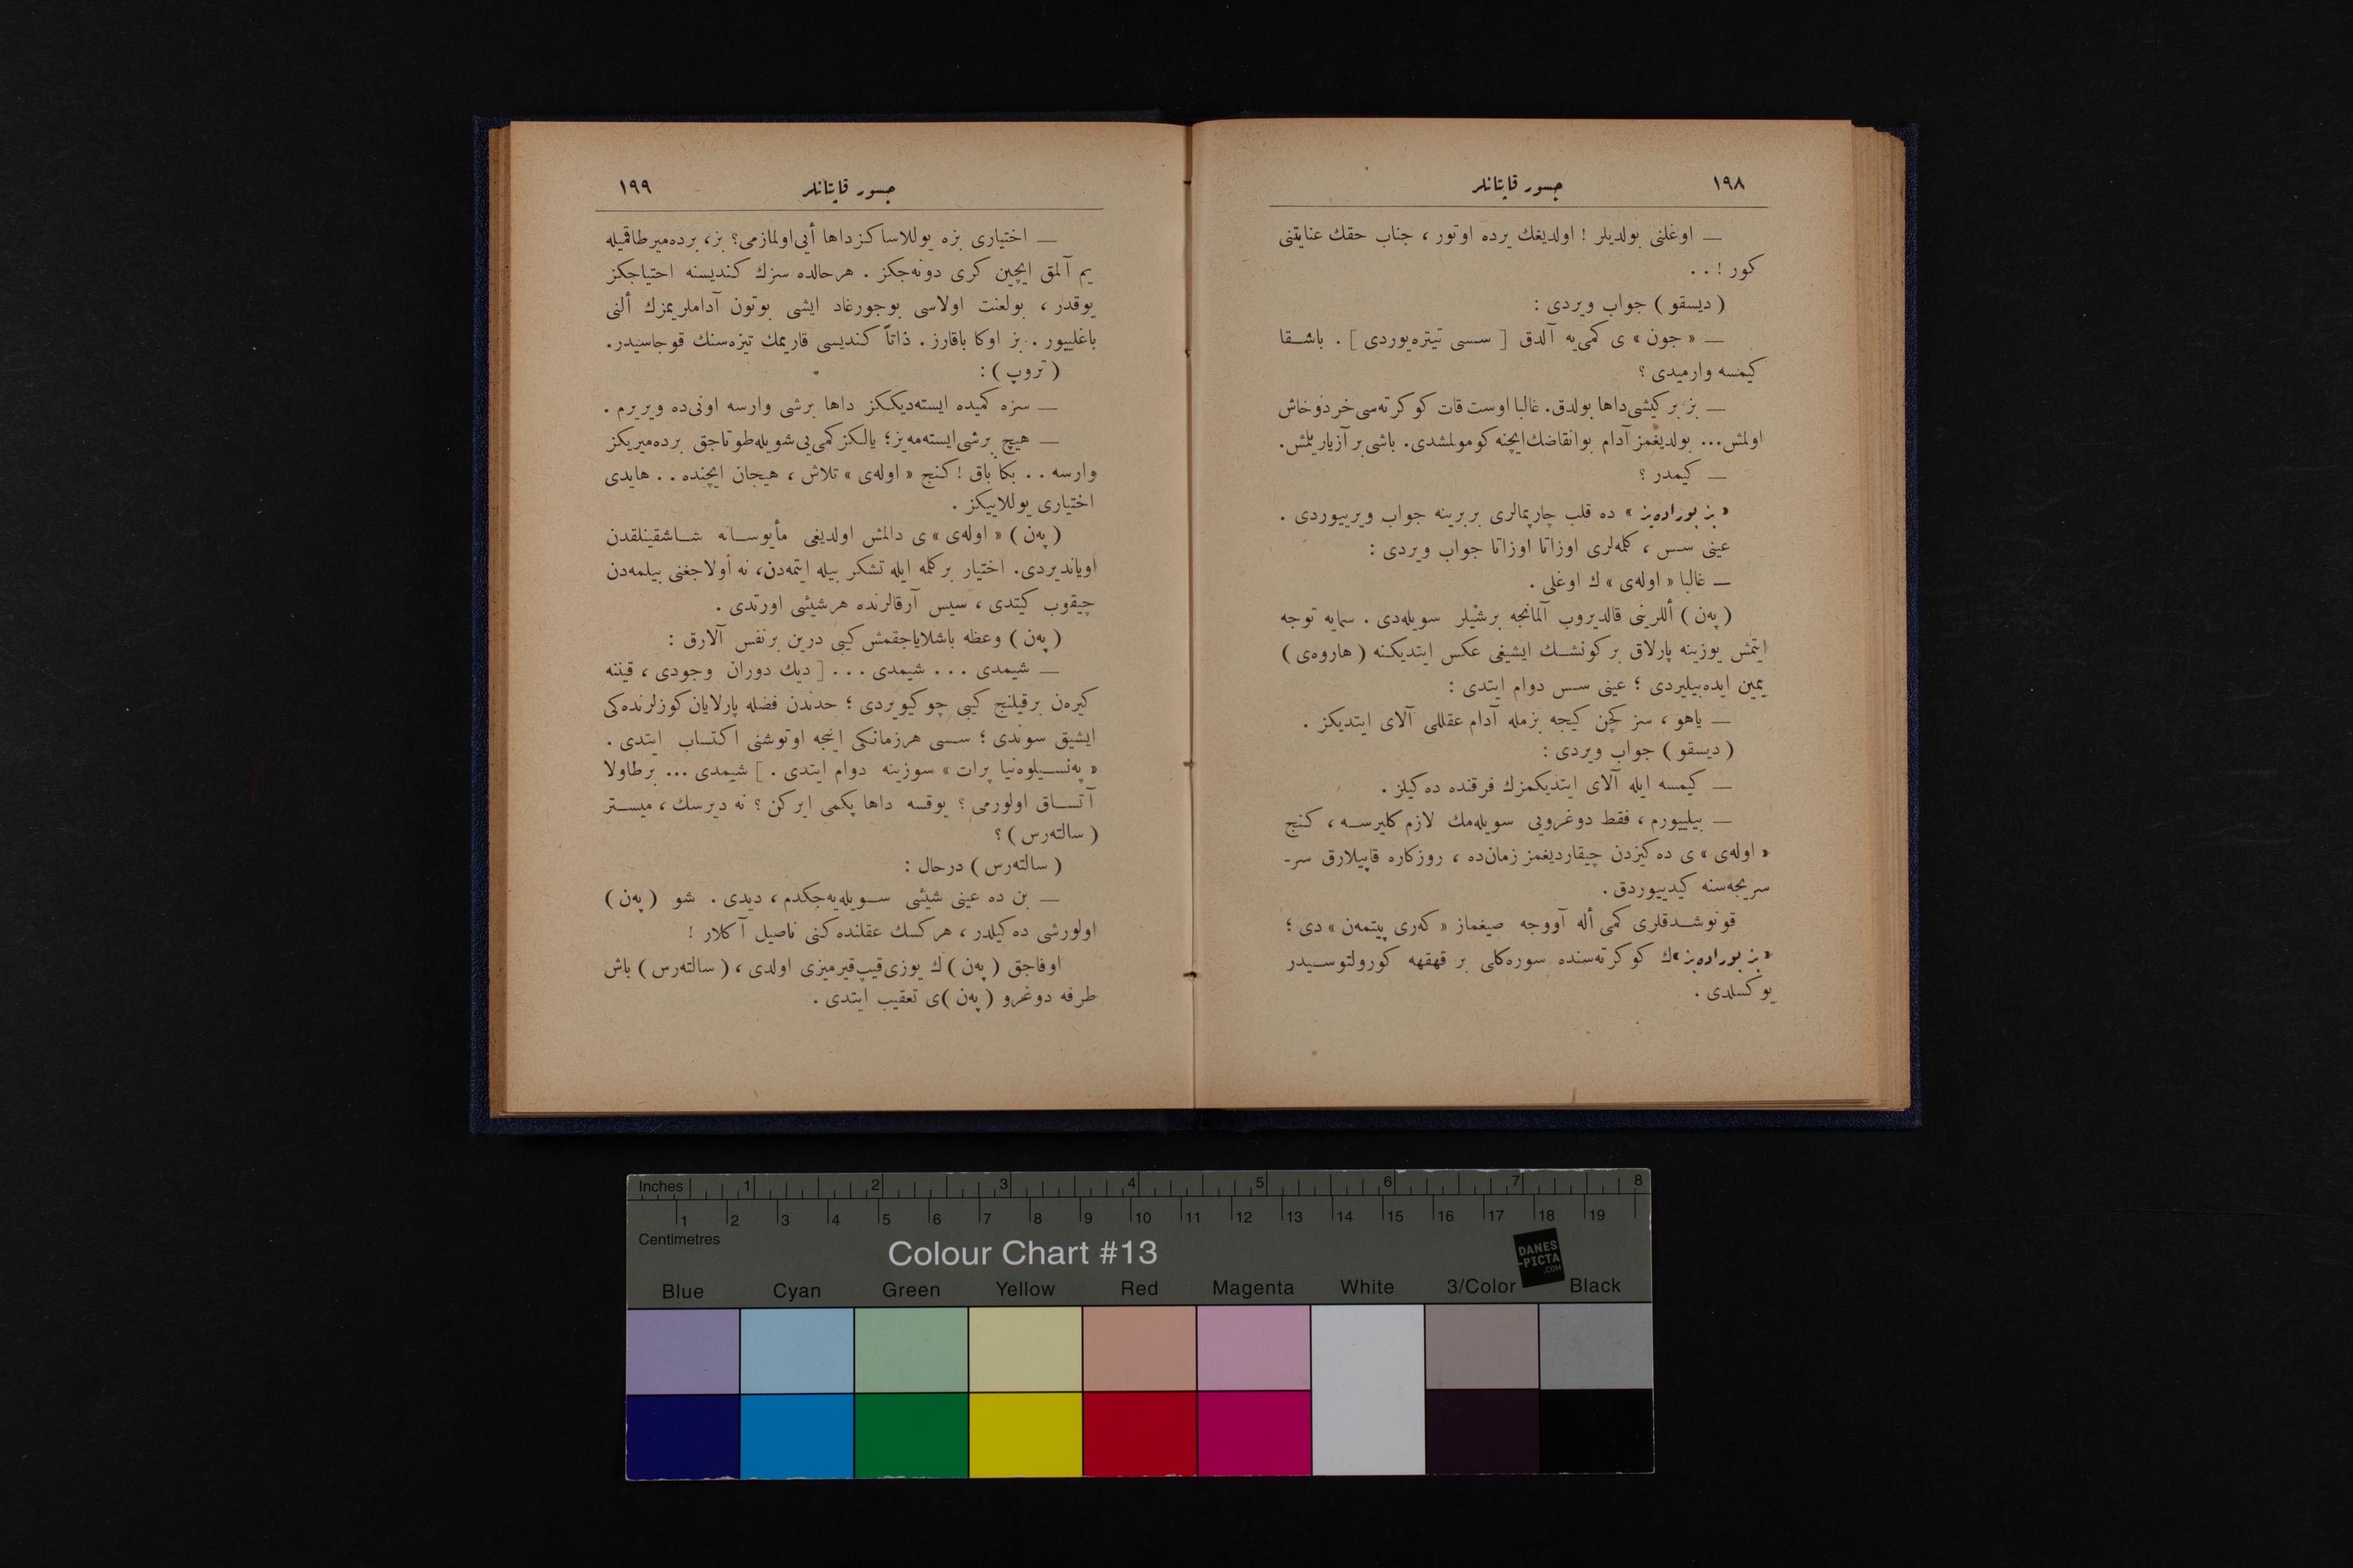 ١٩٨
جسور قاپتانلر
— اوغلنی بولدیلر ! اولدیغك یرده اوتور ، جناب حقك عنایتنی
كور ! . .
( دیسقو ) جواب ویردی :
— « جون » ی كمی‌یه آلدق [ سسی تیتره‌یوردی ] . باشقا
كیمسه وارمیدی ؟
— بز بر كیشی داها بولدق. غالبا اوست قات كوكرته‌سی خردوخاش
اولمش... بولدیغمز آدام بو انقاضك ایچنه كومولمشدی. باشی بر آز یاریلمش.
— كیمدر ؟
« بز بوراده‌یز » ده قلب چارپمالری بربرینه جواب ویرییوردی .
عینی سس ، كلمه‌لری اوزاتا اوزاتا جواب ویردی :
— غالبا « اوله‌ی » ك اوغلی .
( په‌ن ) أللرینی قالدیروب آلمانجه برشیلر سویله‌دی . سمایه توجه
ایتمش یوزینه پارلاق بر كونشك ایشیغی عكس ایتدیكنه ( هاروه‌ی )
یمین ایده‌بیلیردی ؛ عینی سس دوام ایتدی :
— یاهو ، سز كچن كیجه بزمله آدام عقللی آلای ایتدیكز .
( دیسقو ) جواب ویردی :
— كیمسه ایله آلای ایتدیكمزك فرقنده ده‌كیلز .
— بیلییورم ، فقط دوغرویی سویله‌مك لازم كلیرسه ، كنج
« اوله‌ی » ی ده‌كیزدن چیقاردیغمز زمان‌ده ، روزكاره قاپیلارق سر-
سریجه‌سنه كیدییوردق .
قونوشدقلری كمی أله آووجه صیغماز « كه‌ری پیتمه‌ن » دی ؛
« بز بوراده‌یز »ك كوكرته‌سنده سوره‌كلی بر قهقهه كورولتوسیدر
یوكسلدی .
١٩٩
جسور قاپتانلر
— اختیاری بزه یوللاساكز داها أیی اولمازمی؟ بز، برده‌میر طاقمیله
یم آلمق ایچین كری دونه‌جكز . هرحالده سزك كندیسنه احتیاجكز
یوقدر ، بولعنت اولاسی بوجورغاد ایشی بوتون آداملریمزك ألنی
باغلییور . بز اوكا باقارز . ذاتاً كندیسی قاریمك تیزه‌سنك قوجاسیدر.
( تروپ ) :
— سزه كمیده ایسته‌دیككز داها برشی وارسه اونی‌ده ویریرم .
— هیچ برشی ایسته‌مه‌یز؛ یالكز كمی‌یی شویله‌طوتاجق برده‌میریكز
وارسه . . بكا باق ! كنج « اوله‌ی » تلاش ، هیجان ایچنده . . هایدی
اختیاری یوللاییكز .
( په‌ن ) « اوله‌ی » ی دالمش اولدیغی مأیوسانه شاشقینلقدن
اویاندیردی. اختیار بركلمه ایله تشكر بیله ایتمه‌دن، نه اولاجغنی بیلمه‌دن
چیقوب كیتدی ، سیس آرقالرنده هرشیئی اورتدی .
( په‌ن ) وعظه باشلایاجقمش كیبی درین برنفس آلارق :
— شیمدی . . . شیمدی . . . [ دیك دوران وجودی ، قیننه
كیره‌ن برقیلنج كیبی چوكیویردی ؛ حدندن فضله پارلایان كوزلرنده‌كی
ایشیق سوندی ؛ سسی هرزمانكی اینجه اوتوشنی اكتساب ایتدی .
« په‌نسیلوه‌نیا پرات » سوزینه دوام ایتدی . ] شیمدی ... برطاولا
آتساق اولورمی ؟ یوقسه داها پكمی ایركن ؟ نه دیرسك ، میستر
( سالته‌رس ) ؟
( سالته‌رس ) درحال :
— بن ده عینی شیئی سویله‌یه‌جكدم ، دیدی . شو ( په‌ن )
اولورشی ده‌كیلدر ، هركسك عقلنده‌كنی ناصیل آكلار !
اوفاجق ( په‌ن )ك یوزی قیپ‌قیرمیزی اولدی ، ( سالته‌رس ) باش
طرفه دوغرو ( په‌ن )ی تعقیب ایتدی .
Inches 1 2 3 4 5 6 7 8
1 2 3 4 5 6 7 8 9 10 11 12 13 14 15 16 17 18 19
Centimetres
Colour Chart #13
DANES
-PICTA
.COM
Blue Cyan Green Yellow Red Magenta White 3/Color Black